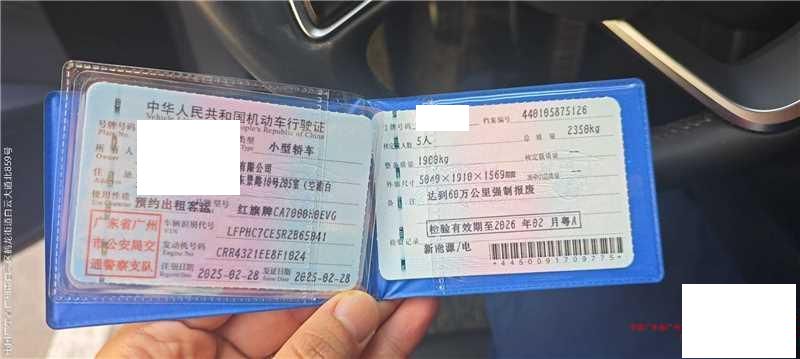 中华人民共和国机动车行驶证
People's Republic of China
号牌号码
类型 小型轿车
所有人
Owner
有限公司
住址
景路10号205室
使用性质
预约出租客运
型号 红旗牌CA7000
EVG
广东省广州
市公安局交
通警察支队
车辆识别代号
VIN
发动机号码
Engine No.
CRR4321EE8F1024
注册日期
Register Date
2025-02-28
发证日期
Issue Date
2025-02-28
号牌号码
档案编号 440105875126
核定载人数 5人
总质量 2350kg
整备质量 1900kg
核定载质量 --
外廓尺寸 5040×1910×1569mm
准牵引总质量 --
备注 达到60万公里强制报废
检验有效期至2026年02月粤A
检验记录
新能源/电
*4450091709775*
鹤龙街道白云大道北859号